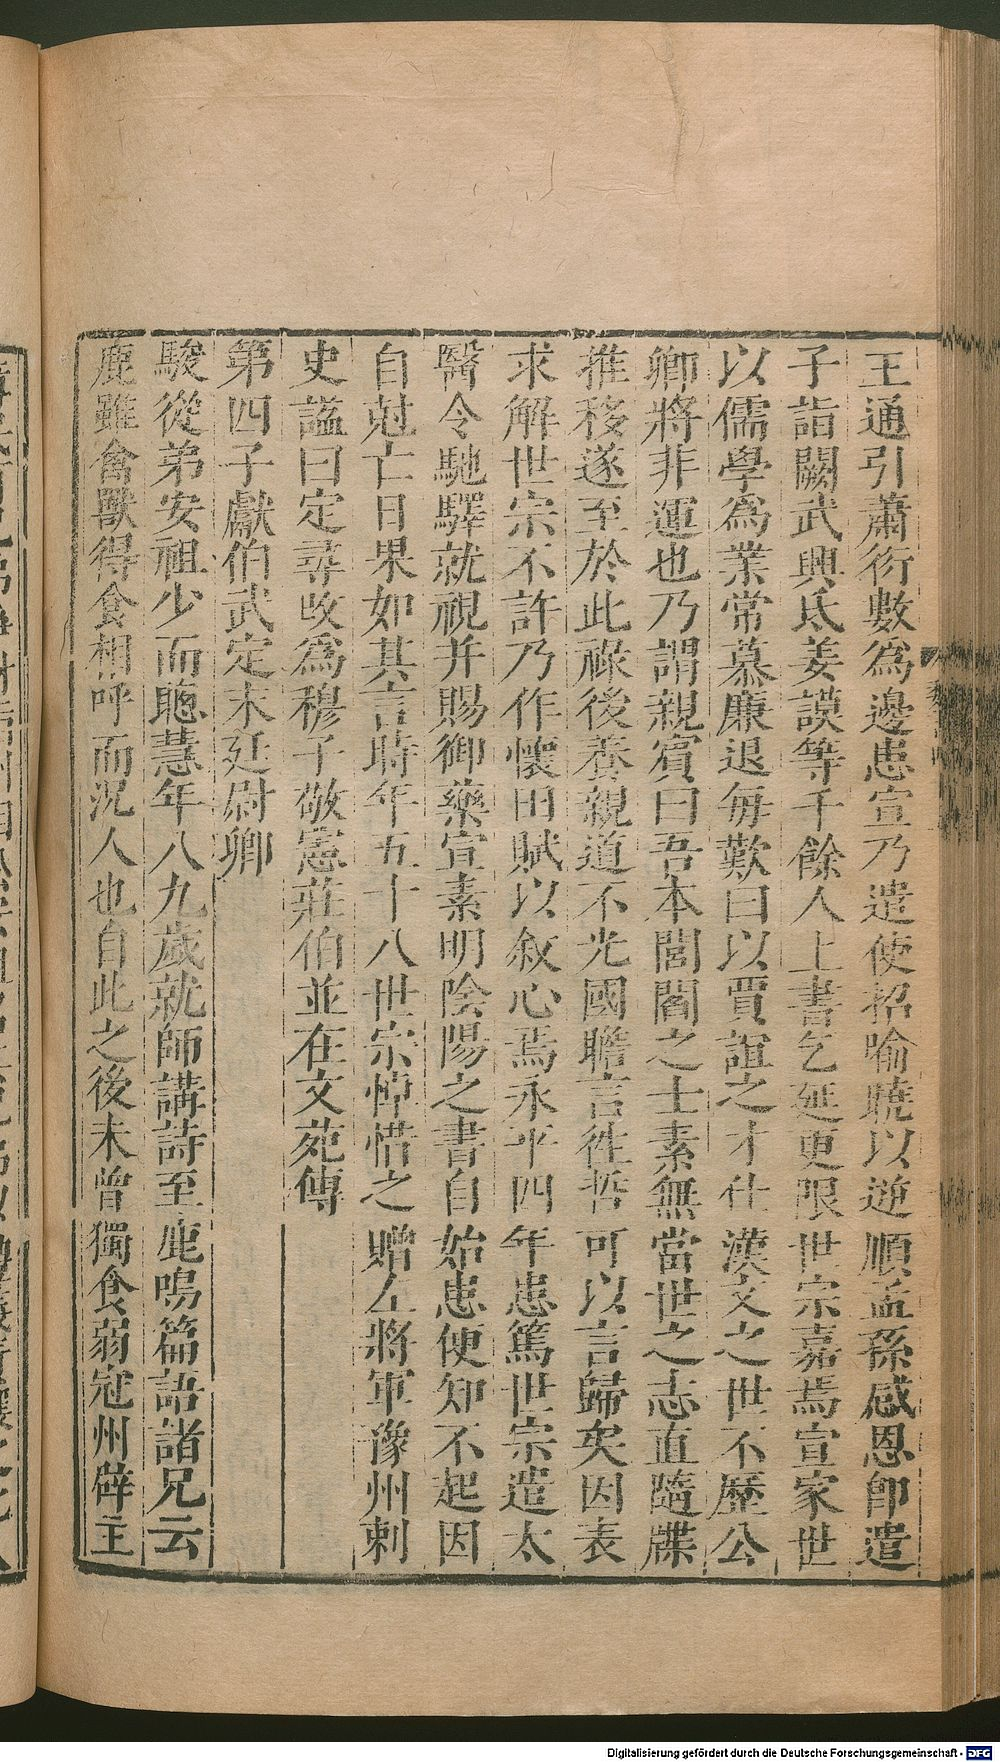 王通引蕭衍數為邊患宣乃遣使招喻曉以逆順孟孫感恩卽遣
子詣闕武興氐姜謨等千餘人上書乞延更限世宗嘉焉宣家世
以儒學為業常慕廉退每歎曰以賈誼之才仕漢文之世不歷公
卿將非運也乃謂親賓曰吾本閭閻之士素無當世之志直隨牒
推移遂至於此祿後養親道不光國瞻言徃哲可以言歸矣因表
求解世宗不許乃作懷田賦以敘心焉永平四年患篤世宗遣太
醫令馳驛就視并賜御藥宣素明陰陽之書自始患便知不起因
自尅亡日果如其言時年五十八世宗悼惜之贈左將軍豫州刺
史謚曰定尋改為穆子敬憲莊伯並在文苑傳
第四子獻伯武定末廷尉卿
駿從弟安祖少而聰慧年八九歲就師講詩至鹿鳴篇語諸兄云
鹿雖禽獸得食相呼而況人也自此之後未曾獨食弱冠州辟主
Digitalisierung gefördert durch die Deutsche Forschungsgemeinschaft - DFG